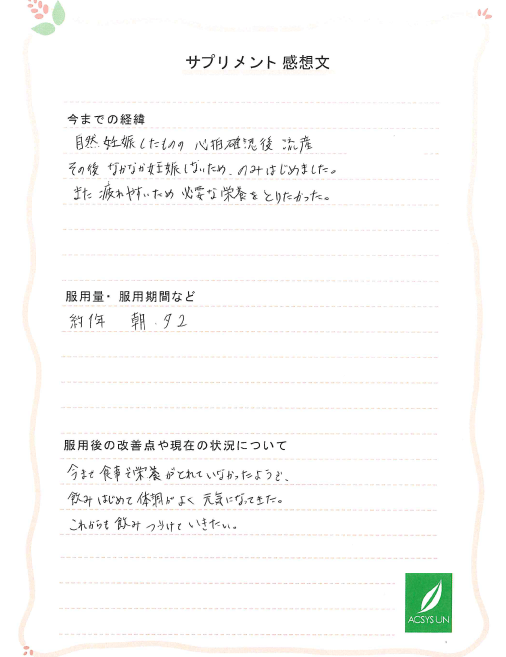 サプリメント 感想文
今までの経緯
自然妊娠したものの 心拍確認後 流産
その後 なかなか妊娠しないため、のみはじめました。
また 疲れやすいため 必要な栄養を とりたかった。
服用量・服用期間など
約1年 朝・夕2
服用後の改善点や現在の状況について
今まで 食事で栄養が とれていなかったようで、
飲みはじめて 体調がよく 元気になってきた。
これからも 飲み つづけて いきたい。
ACSYS LIN